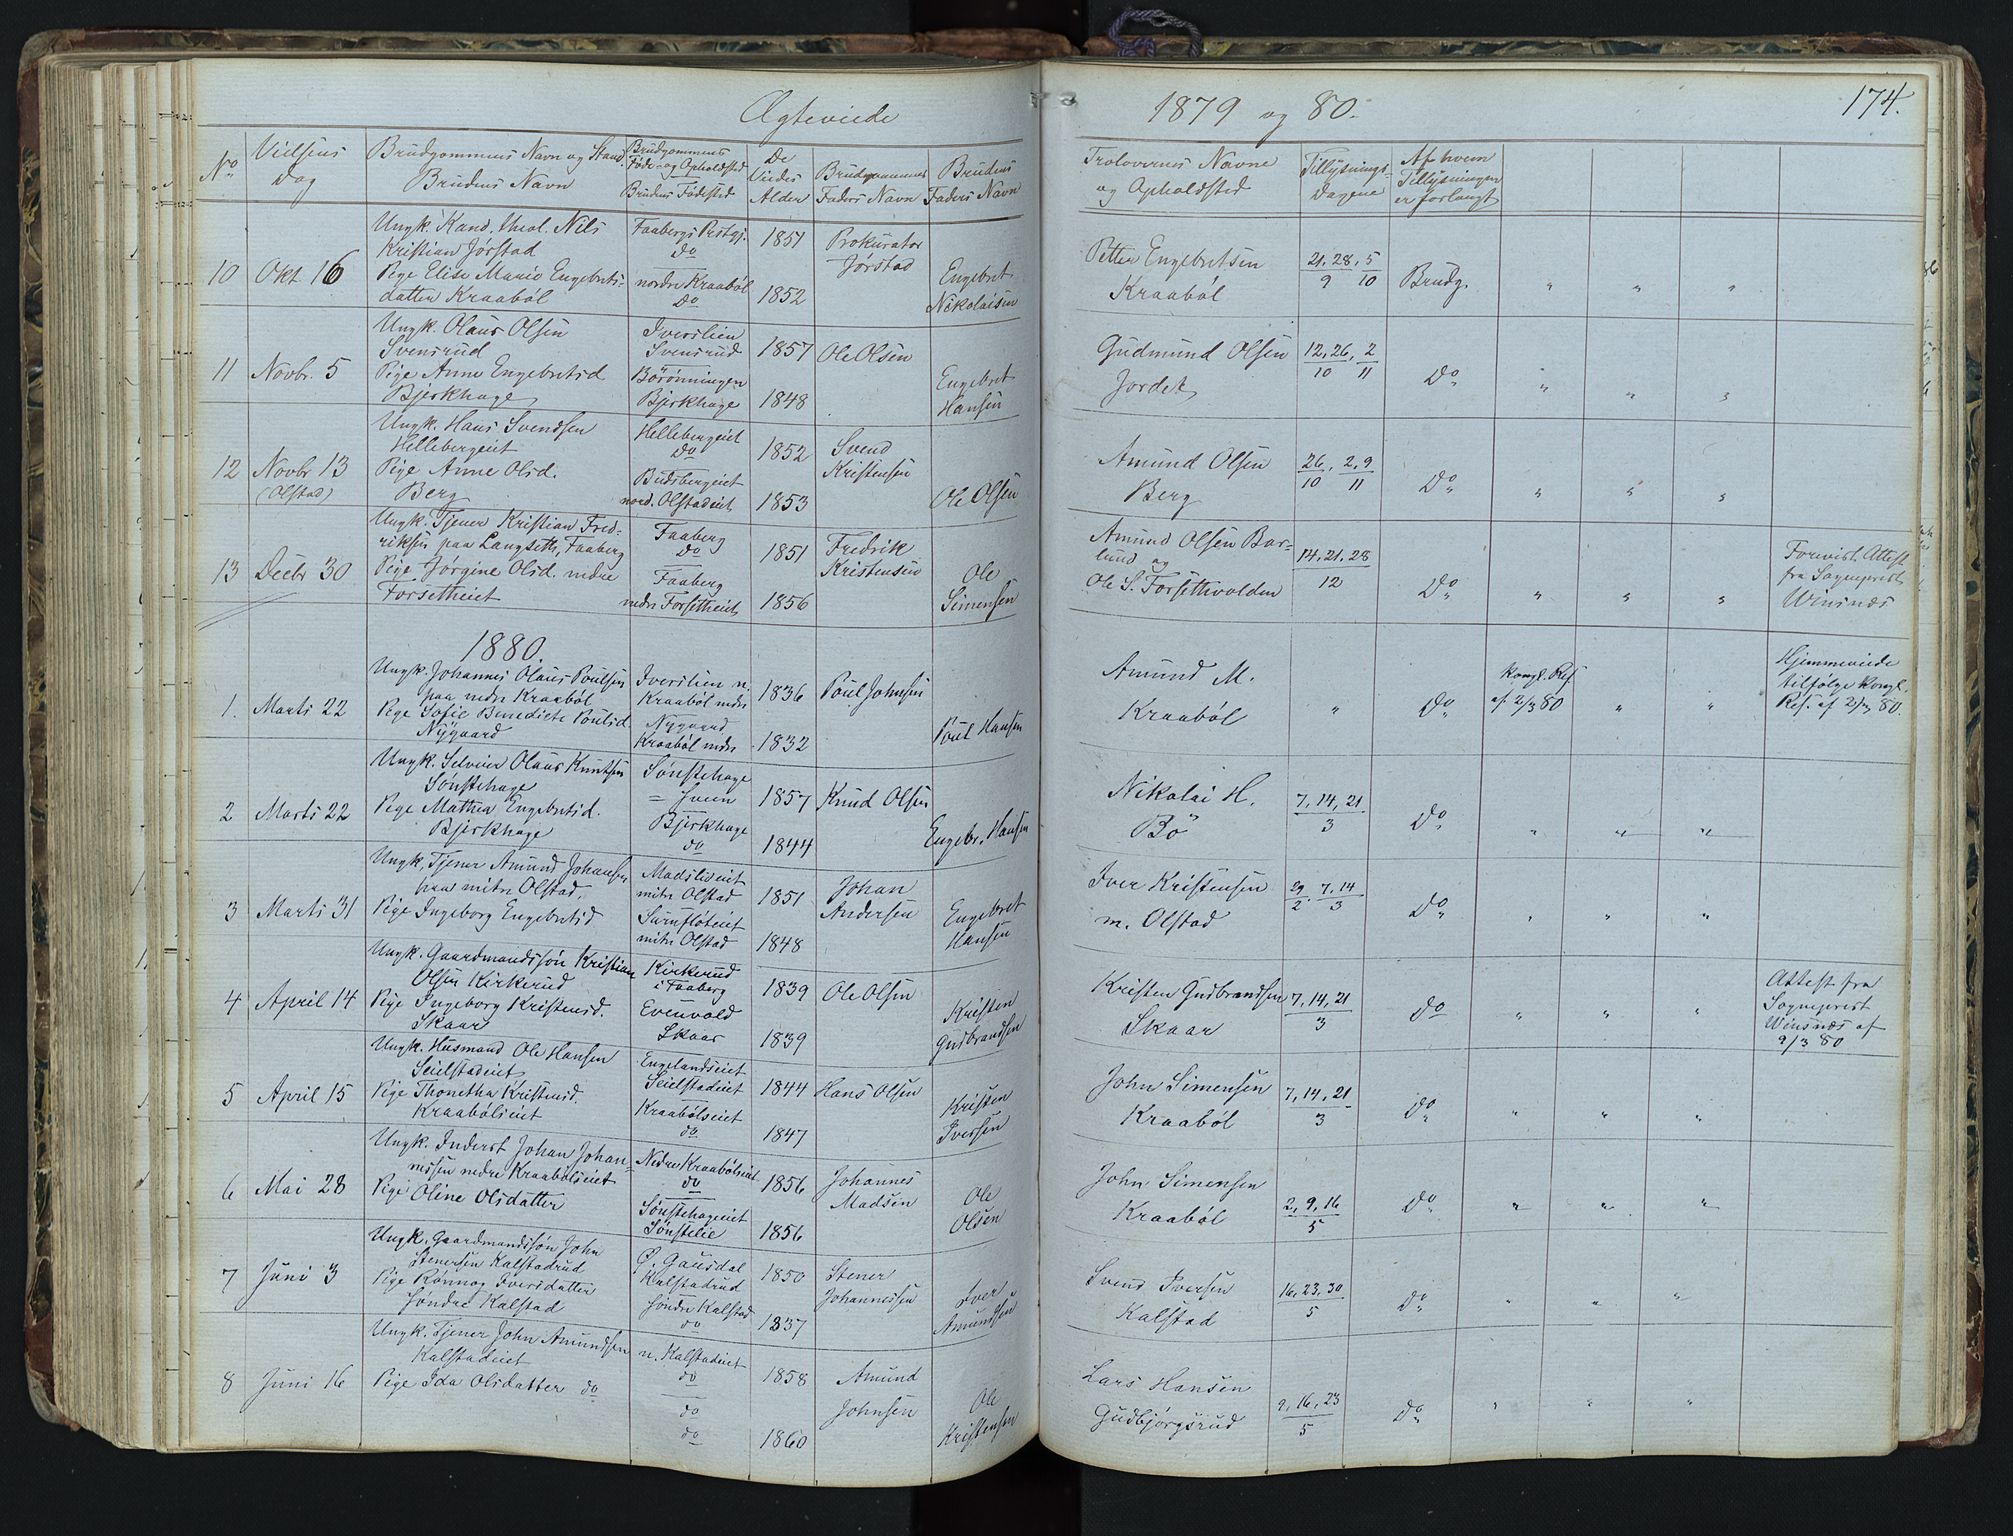 Ægteviede
1879 og 80.
174.
No
Vielsens
Dag
Brudgommens Navn og Stand.
Brudens Navn
Brudgommens
Føde- og Opholdsted
Brudens Fødested
De
Viedes
Alder
Brudgommens
Faders Navn
Brudens
Faders Navn
Trolovernes Navne
og Opholdsted
Tillysnings-
Dagene
Af hvem
Tillysningen
er forlangt
10 Okt 16
Ungk. Kand. theol. Nils
Kristian Jørstad
Pige Elise Marie Engebrets-
datter Kraabøl
Faabergs Prstgj.
do
nordre Kraabøl
do
1851
1852
Prokurator
Jørstad
Engebret
Nikolaisen
Petter Engebretsen
Kraabøl
21, 28, 5
9 10
Brudg. " " "
11 Novbr. 5
Ungk. Olaus Olsen
Svensrud
Pige Anne Engebretsd
Bjerkhage
Iverslien
Svensrud
Börönningen
Bjerkhage
1857
1848
Ole Olsen
Engebret
Hansen
Gudmund Olsen
Jordet
12, 26, 2
10 11
Do " " "
12 Novbr 13
(Olstad)
Ungk. Hans Svendsen
Hellebergeiet
Pige Anne Olsd.
Berg
Hellebergeiet
do
Budsbergeiet
nord. Olstadeiet
1852
1853
Svend
Kristensen
Ole Olsen
Amund Olsen
Berg
26, 2, 9
10 11
Do " " "
13 Decbr 30
Ungk. Tjener Kristian Fred-
riksen paa Langseth, Faaberg
Pige Jørgine Olsd. nedre
Forsetheiet
Faaberg
do
Faaberg
nedre Forsetheiet
1851
1856
Fredrik
Kristensen
Ole
Simensen
Amund Olsen Bar-
lund og
Ole S. Forsethvolden
14, 21, 28
12
Do " " "
Forevist Attest
fra Sogneprest
Winsnæs
1880.
1. Marts 22
Ungk. Johannes Olaus Poulsen
paa nedre Kraabøl
Pige Sofie Benedicte Poulsd
Nygaard
Iverslien n.
Kraabøl nedre
Nygaard
Kraabøl nedre
1836
1832
Poul Johnsen
Poul Hansen
Amund M.
Kraabøl
" Do
Kongl. Res
af 2/3 80
" "
Hjemmeviede
tilfølge Kongl.
Res. af 2/3 80.
2 Marts 22
Ungk. Selvier Olaus Knutsen
Sønstehage
Pige Mathea Engebretsd.
Bjerkhage
Sønstehage
= Sveen
Bjerkhage
do
1857
1844
Knud Olsen
Engebr. Hansen
Nikolai H.
Bö
7, 14, 21
3
Do " " "
3 Marts 31
Ungk. Tjener Amund Johansen
paa mitre Olstad.
Pige Ingeborg Engebretsd
Madslieiet
mitre Olstad
Surufloteiet
mitre Olstad
1851
1848
Johan
Andersen
Engebret
Hansen
Iver Kristensen
m. Olstad
29, 7, 14
2 3
Do " " "
4 April 14
Ungk. Gaardmandssøn Kristian
Olsen Kirkerud
Pige Ingeborg Kristensd.
Skaar
Kirkerud
i Faaberg
Evenvold
Skaar
1839
1839
Ole Olsen
Kristen
Gudbrandsen
Kristen Gudbrandsen
Skaar
7, 14, 21
3
do " " "
Attest fra
Sogneprest
Winsnæs af
9/3 80
5 April 15
Ungk. Husmand Ole Hansen
Seielstadeiet
Pige Thonetha Kristensd.
Kraabølseiet
Engelandseiet
Seielstadeiet
Kraabølseiet
do
1844
1847
Hans Olsen
Kristen
Iversen
John Simensen
Kraabøl
7, 14, 21
3
do " " "
6 Mai 28
Ungk. Inderst Johan Johan-
nessen nedre Kraabølseiet
Pige Oline Olsdatter
Nedre Kraabølseiet
do
Sønstehageeiet
Sønstelie
1856
1856
Johannes
Madsen
Ole
Olsen
John Simensen
Kraabøl
2, 9, 16
5
do " " "
7 Juni 3
Ungk. Gaardmandssøn John
Stenersen Kalstadrud
Pige Rønnog Iversdatter
Søndre Kalstad
Ø. Gausdal
Kalstadrud
Søndre Kalstad
do
1850
1837
Stener
Johannessen
Iver
Amundsen
Svend Iversen
Kalstad
16, 23, 30
5
Do " " "
8 Juni 16
Ungk. Tjener John Amundsen
Kalstadeiet
Pige Ida Olsdatter do
n. Kalstadeiet
do
do
do
1858
1860
Amund
Johnsen
Ole
Kristensen
Lars Hansen
Gudbjørgsrud
9, 16, 23
5
Do " " "